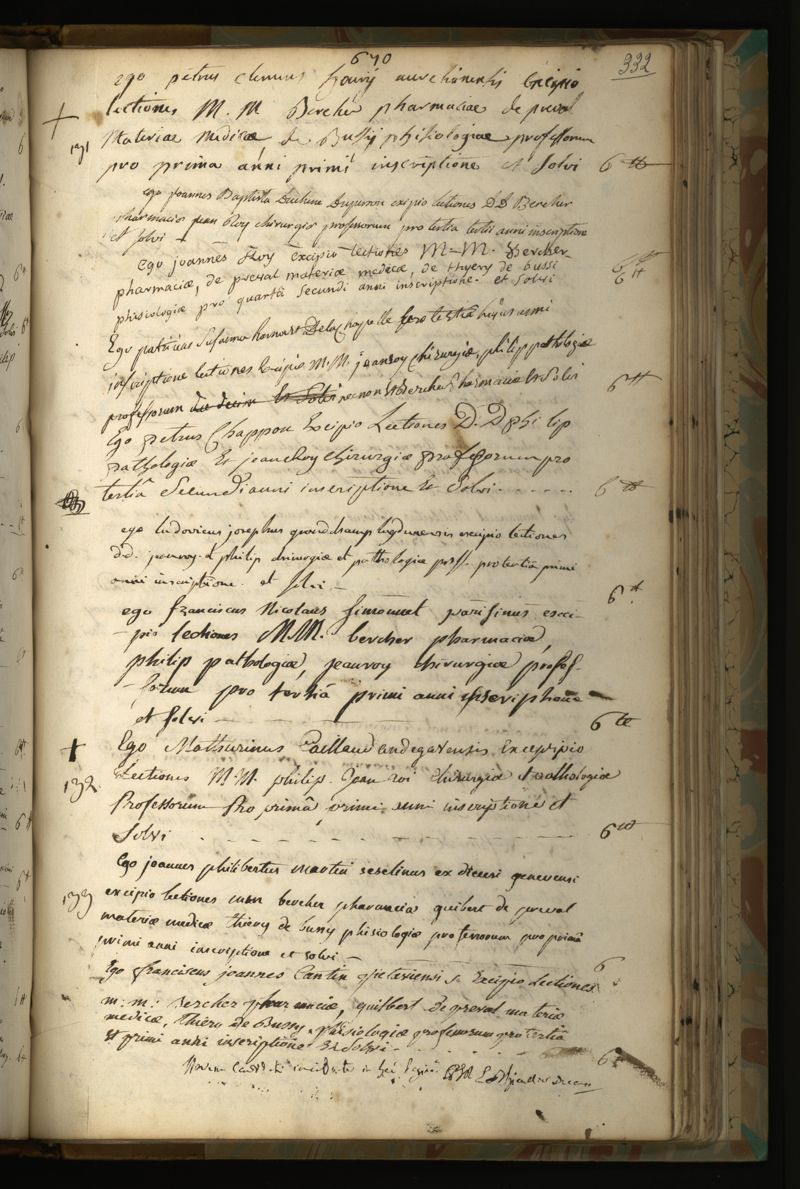 670
332
ego petrus clemens houry aurelianensis Excipio
lectiones M. M Bercher pharmaciae de preval
131 Materiae medicae, de Bussy phisiologiae professorum
pro prima anni primi inscriptione et solvi 6 tt
ego joannes Baptista excipio lectiones DD Bercher
pharmaciae jean Roy chirurgiae professorum pro tertia tertii anni inscriptione
et solvi
Ego joannes Roy Excipio lectiones M-M. Bercher
pharmaciae, de preval materiae medicae, de thyery de bussi
phisiologiae pro quarta secundi anni inscriptione et solvi 6 tt
Ego patricius De la Chapelle pro tertiâ hujus anni
inscriptione lectiones Excipio M. M. jeanroy chirurgiae, philip pathologiae
professorum nec non Bercher pharmaciae Et Solvi 6 tt
Ego petrus Chappon Excipio Lectiones D. D philip
pathologiae Et jeanRoy chirurgiae professorum pro
tertiâ Secundi anni inscriptione Et Solvi 6 tt
ego ludovicus josephus lugdunensis excipio lectiones
d.d. jeanroy et philip chirurgiae et pathologiae proff. pro tertiâ primi
anni inscriptione et solvi 6 tt
ego franciscus Nicolaus Simonnet parisinus exci-
-pio lectiones MM. bercher pharmaciae,
philip pathologiae, jeanroy chirurgiae profes-
-sorum pro tertiâ primi anni inscriptione
et solvi 6 tt
Ego Mathurinus Caillaud andegavensis Excipio
132 Lectiones M.M. philip. Jean roi chirurgiae et pathologiae
Professorum Pro primâ primi anni inscriptione et
Solvi 6 tt
Ego joannes philibertus martin seselinus ex diocesi genevensi
133 excipio lectiones mm bercher pharmaciae guibert de preval
materiae medicae thiery de bussy phisiologiae professorum pro primâ
primi anni inscriptione et solvi 6
Ego franciscus joannes Cantin Excipio Lectiones
m. m. Bercher pharmaciae, guilbert de preval materiae
medicae, thiery de Bussy phisiologiae professorum pro tertiâ
et primi anni inscriptione Et Solvi 6 tt